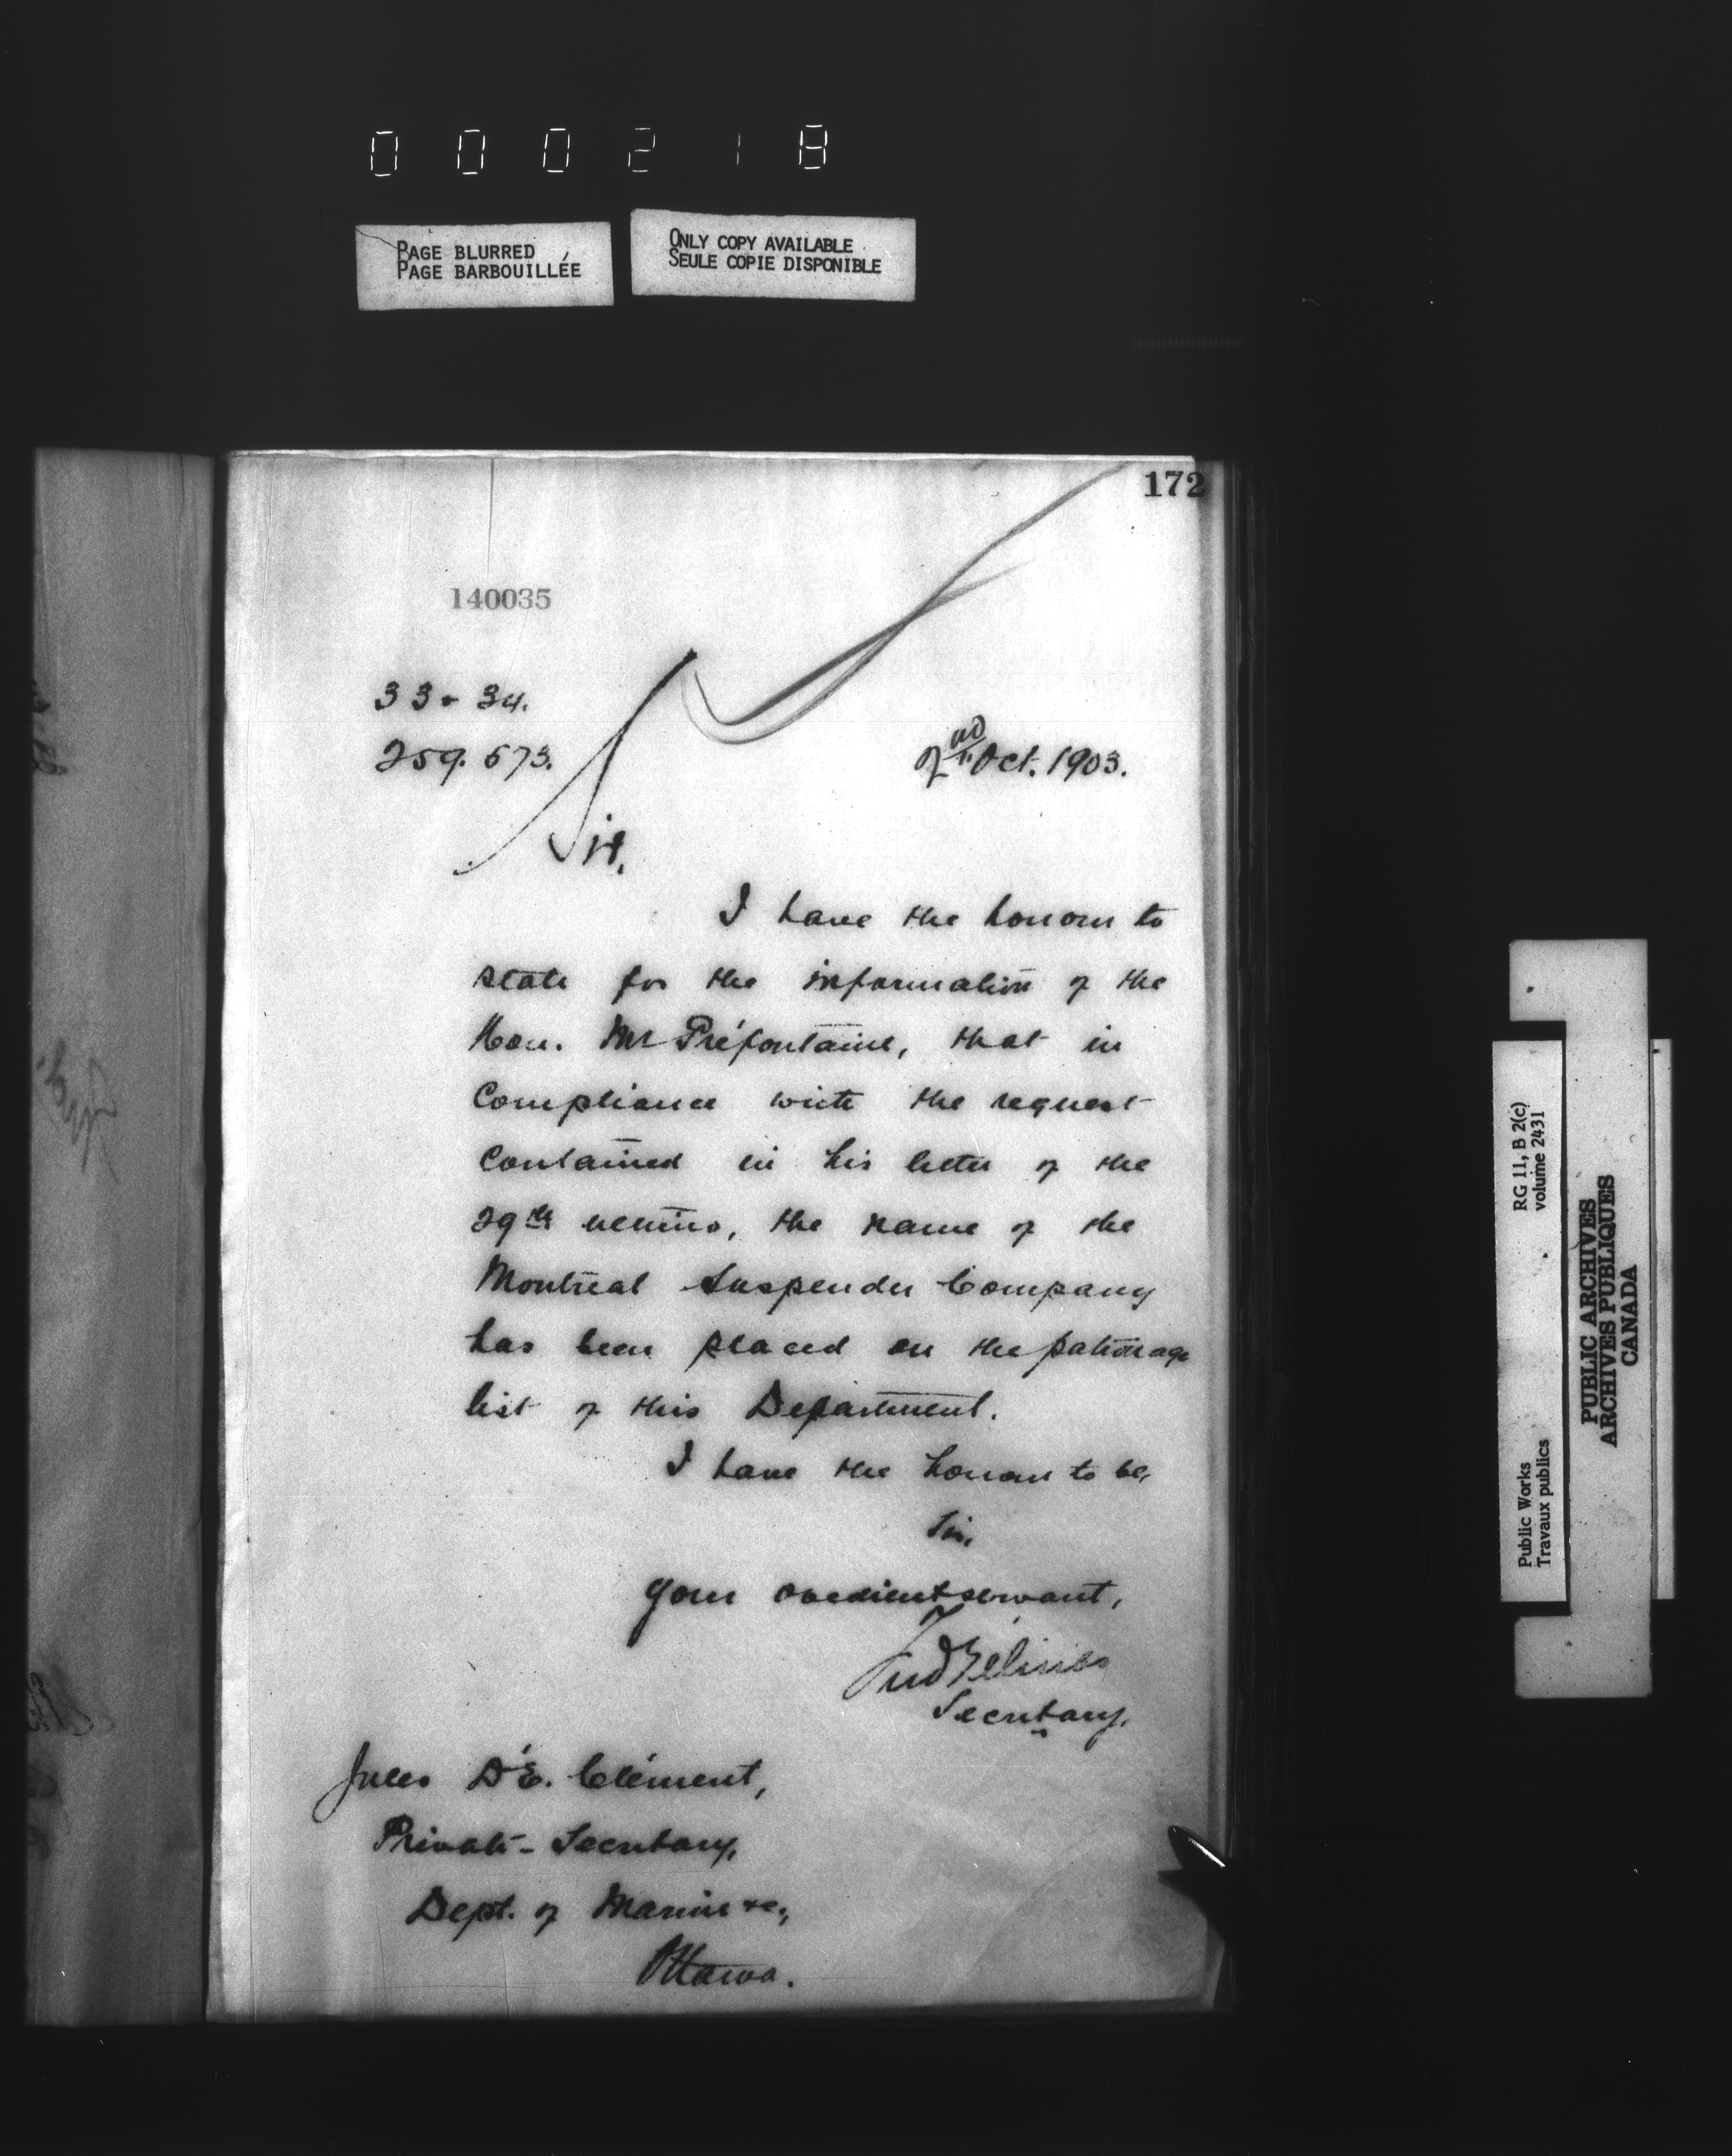 000218
PAGE BLURRED
PAGE BARBOUILLÉE
ONLY COPY AVAILABLE
SEULE COPIE DISPONIBLE
172
140035
33 & 34.
259.573.
2nd Oct. 1903.
Sir,
I have the honour to
state for the information of the
Hon. Mr Préfontaine, that in
compliance with the request
contained in his letter of the
29th ultimo, the name of the
Montreal Suspender Company
has been placed on the patronage
list of this Department.
I have the honour to be,
Sir,
Your obedient servant,
Fred Gélinas
Secretary.
Jules D'E. Clément,
Private-Secretary,
Dept. of Marine &c.,
Ottawa.
Public Works
Travaux publics
RG 11, B 2(c)
volume 2431
PUBLIC ARCHIVES
ARCHIVES PUBLIQUES
CANADA